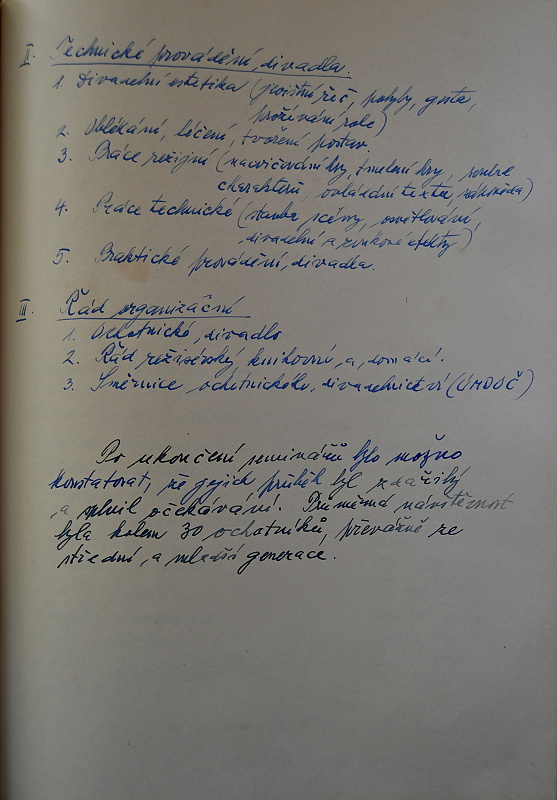 II. Technické provádění divadla.
1. Divadelní estetika (jevištní řeč, pohyby, gesta,
prožívání role)
2. Oblékání, líčení, tvoření postav.
3. Práce režijní (nacvičování hry, tmelení hry, souhra
charakterů, ovládání textu, nápověda)
4. Práce technické (stavba scény, osvětlování,
divadelní a zvukové efekty)
5. Praktické provádění divadla.
III. Řád organizační
1. Ochotnické divadlo
2. Řád režisérský, knihovní, a domácí.
3. Směrnice ochotnického divadelnictví (ÚMDOČ)
Po ukončení seminářů bylo možno
konstatovat, že jejich průběh byl zdařilý
a splnil očekávání. Průměrná návštěvnost
byla kolem 30 ochotníků, převážně ze
střední a mladší generace.